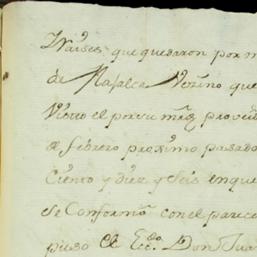 Naises que quedaron por m
de Rafalca Verino que
Visto el por su mrẑ provei
de febrero proximo pasado
Ciento y diez y seis en que
se Conformô con el parece
puso el Exô. Don Jua